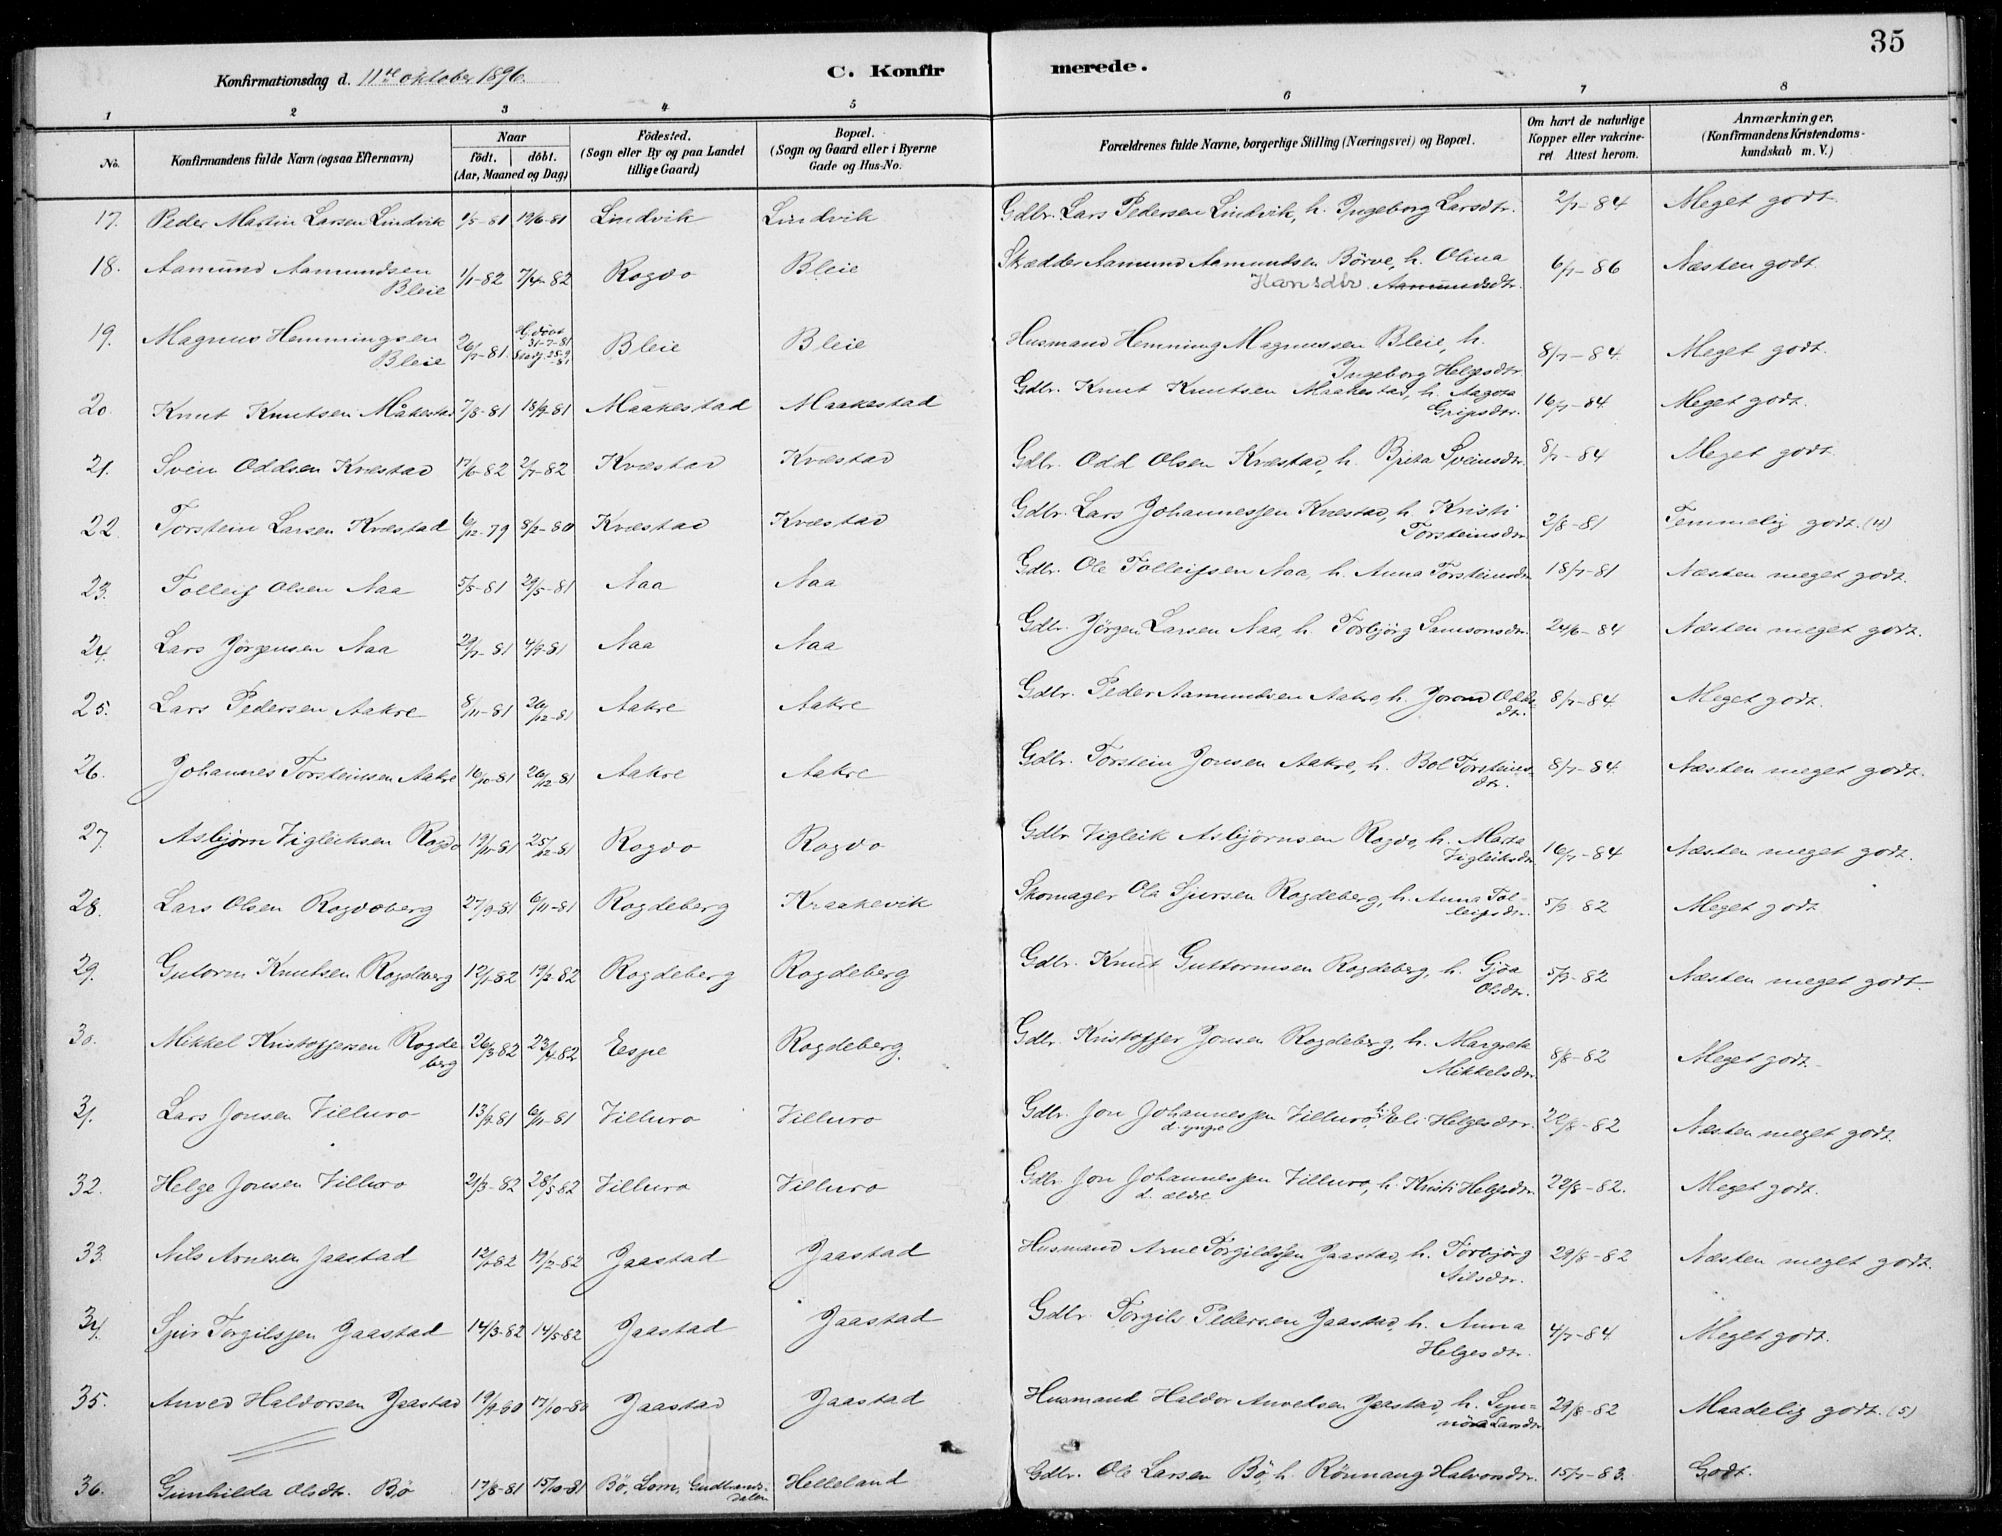 35
Konfirmationsdag d. 11te oktober 1896.
C. Konfirmerede.
1 2 3 4 5 6 7 8
No. | Konfirmandens fulde Navn (ogsaa Efternavn) | Naar födt. döbt. (Aar, Maaned og Dag) | Födested. (Sogn eller By og paa Landet tillige Gaard) | Bopæl. (Sogn og Gaard eller i Byerne Gade og Hus-No. | Forældrenes fulde Navne, borgerlige Stilling (Næringsvei) og Bopæl. | Om havt de naturlige Kopper eller vakcineret Attest herom. | Anmærkninger, (Konfirmandens Kristendomskundskab m. V.)
17. Peder Martin Larsen Lindvik 1/5-81 19/6-81 Lindvik Lindvik Gdbr. Lars Pedersen Lindvik, h. Ingeborg Larsdtr. 2/7-84 Meget godt.
18. Aamund Aamundsen Bleie 1/1-82 7/4-82 Rogdo Bleie Skrædder Aamund Aamundsen Börve, h. Olina Hansdtr. Aamundsdtr. 6/7-86 Næsten godt.
19. Magnus Hemmingsen Bleie 26/7-81. Hj.döbt 31-7-81 Bleie Bleie Husmand Hemming Magnussen Bleie, h. Ingeborg Helgesdtr. 8/7-84. Meget godt.
20. Knut Knutsen Måkestad 7/8-81 18/9-81 Maakestad Maakestad Gdbr. Knut Knutsen Maakestad, h. Aagota Gripsdtr. 16/7-84. Meget godt.
21. Svein Oddsen Kvestad 17/6-82 2/7-82 Kvestad Kvestad Gdbr. Odd Olsen Kvestad, h. Brita Sveinsdtr. 8/7-84 Meget godt.
22. Torstein Larsen Kvestad 6/12-79 8/2-80 Kvestad Kvestad Gdbr. Lars Johannessen Kvestad, h. Kristi Torsteinsdtr. 2/8-81 Temmelig godt. (4)
23. Tolleif Olsen Naa 5/5-81 29/5-81 Naa Naa Gdbr. Ole Tolleifsen Naa, h. Anna Torsteinsdtr. 18/7-81 Næsten meget godt.
24. Lars Jörgensen Naa 29/7-81 4/9-81 Naa Naa Gdbr. Jörgen Larsen Naa, h. Torbjörg Samsonsdtr. 24/6-84 Næsten meget godt.
25. Lars Pedersen Aakre 8/11-81 26/12-81 Aakre Aakre Gdbr. Peder Aamundsen Aakre, h. Jorond Oddsdtr. 8/7-84. Meget godt.
26. Johannes Torsteinsen Aakre 16/10-81 26/12-81 Aakre Aakre Gdbr. Torstein Jonsen Aakre, h. Bol Torsteinsdtr. 8/7-84. Næsten meget godt.
27. Asbjörn Vigleiksen Rogdo 19/11-81 25/12-81 Rogdo Rogdo Gdbr Vigleik Asbjörnsen Rogdo, h. Marta Vigleiksdtr. 16/7-84 Næsten meget godt.
28. Lars Olsen Rogdeberg 27/9-81 6/11-81 Rogdeberg Kraakevik Skomager Ole Sjursen Rogdeberg, h. Anna Tolleifsdtr. 5/9-82 Meget godt
29. Gutorm Knutsen Rogdeberg 12/1-82 19/3-82 Rogdeberg Rogdeberg Gdbr. Knut Guttormsen Rogdeberg, h. Gjöa Olsdtr. 5/9-82 Næsten meget godt.
30. Mikkel Kristoffersen Rogdeberg 26/3-82 23/4-82 Espe Rogdeberg. Gdbr. Kristoffer Jonsen Rogdeberg, h. Margreta Mikkelsdtr. 8/8-82 Meget godt.
31. Lars Jonsen Villuro 13/9-81 6/11-81 Villuro Villuro Gdbr. Jon Johannessen d. yngre Villuro, h. Eli Helgesdtr. 22/8-82 Næsten meget godt.
32. Helge Jonsen Villuro 21/3-82 28/5-82 Villuro Villuro Gdbr. Jon Johannessen d. ældre Villuro, h. Kristi Helgesdtr. 22/8-82. Meget godt.
33. Nils Arnesen Jaastad 12/1-82 19/2-82 Jaastad Jaastad Husmand Arne Torgildssen Jaastad, h. Torbjörg Nilsdtr. 29/8-82 Næsten meget godt.
34. Sjur Torgilssen Jaastad 14/3-82 14/5-82 Jaastad Jaastad Gdbr. Torgils Pedersen Jaastad, h. Anna Helgesdtr. 4/7-84. Meget godt.
35. Anved Haldorsen Jaastad 19/9-80 17/10-80 Jaastad Jaastad Husmand Haldor Anvedsen Jaastad, h. Synnöva Larsdtr. 29/8-82 Maadelig godt. (5)
36. Gunhilda Olsdtr. Bö 17/8-81 15/10-81 Bö, Lom, Gudbrandsdalen Helleland Gdbr. Ole Larsen Bö, h. Rönnaug Halvorsdtr. 15/7-83. Godt.